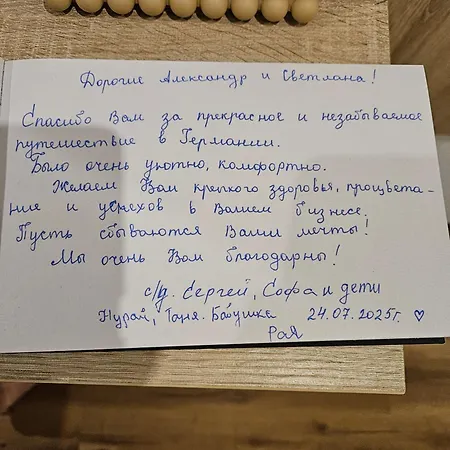 Дорогие Александр и Светлана!
Спасибо Вам за прекрасное и незабываемое
путешествие в Германии.
Было очень уютно, комфортно.
Желаем Вам крепкого здоровья, процвета-
ние и успехов в Вашем бизнесе.
Пусть сбываются Ваши мечты!
Мы очень Вам благодарны!
с/д. Сергей, Софа и дети
Нурай, Таня. Бабушка 24.07.2025г. ♡
РаЯ